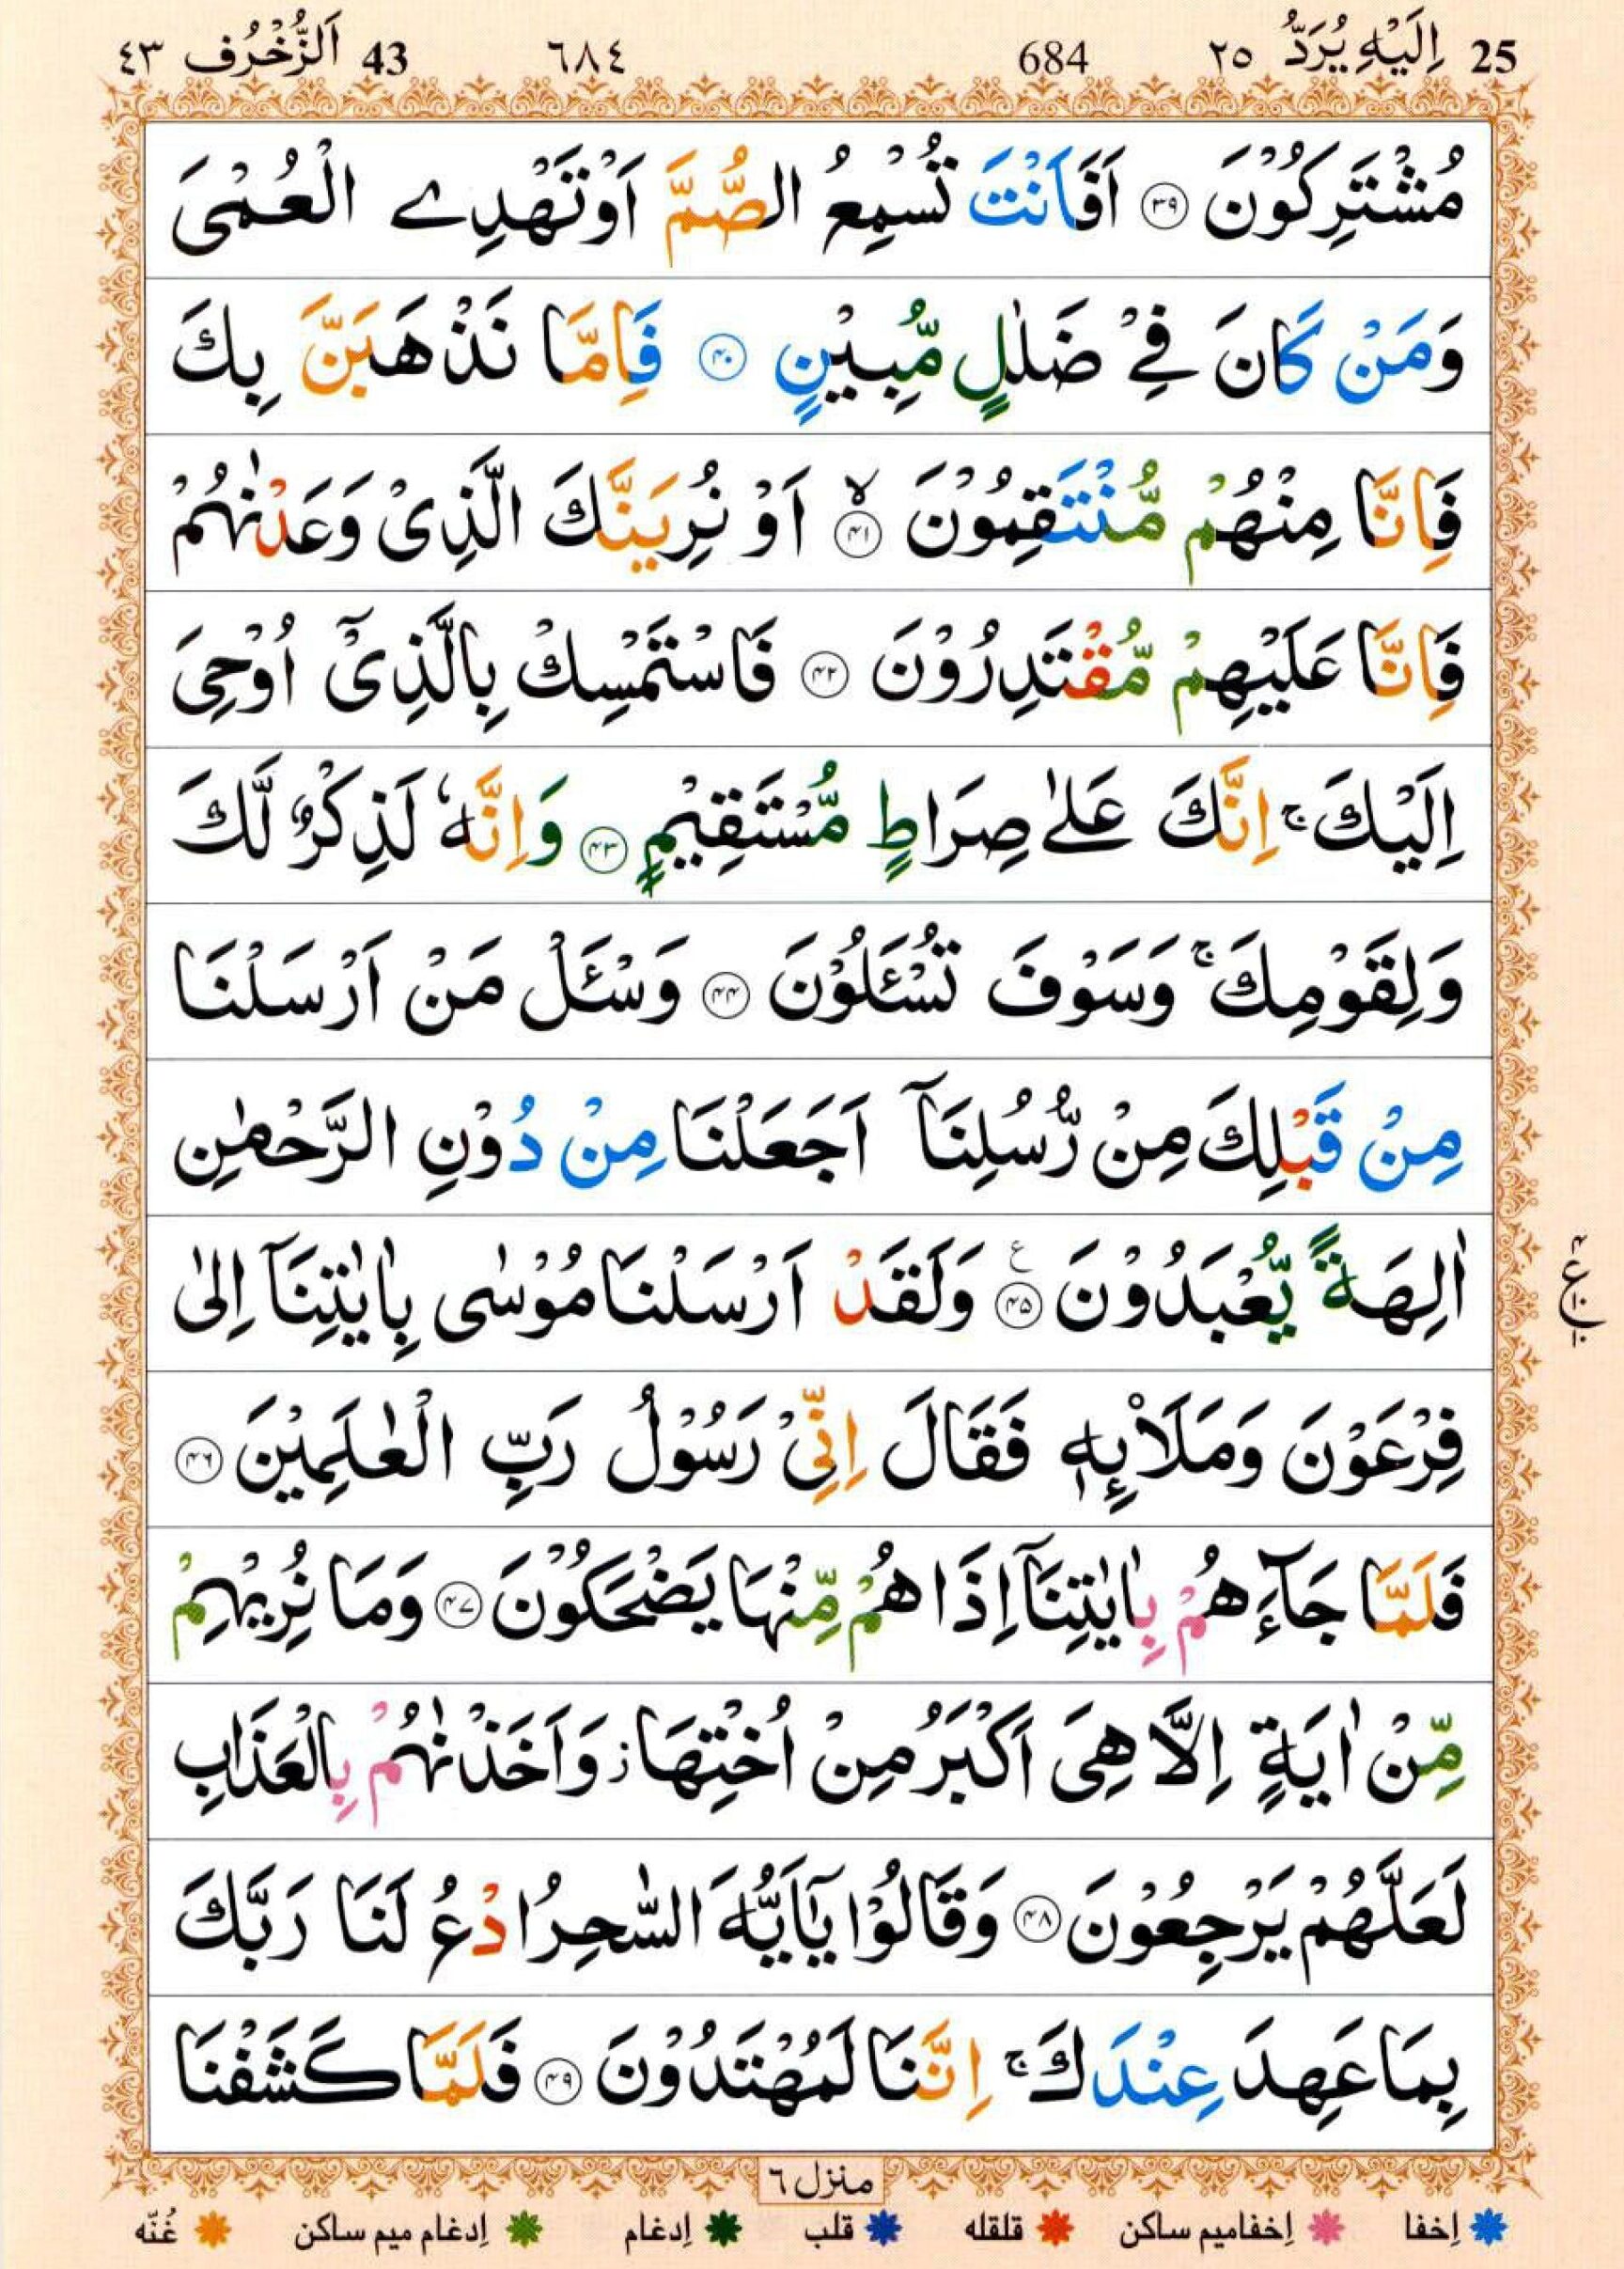 25 اِلَيْهِ يُرَدُّ ٢٥ 684 ٦٨٤ 43 اَلزُّخْرُف ٤٣
مُشْتَرِكُوْنَ ۝٣٩ اَفَاَنْتَ تُسْمِعُ الصُّمَّ اَوْتَهْدِے الْعُمْىَ
وَمَنْ كَانَ فِىْ ضَلٰلٍ مُّبِيْنٍ ۝٤٠ فَاِمَّا نَذْهَبَنَّ بِكَ
فَاِنَّا مِنْهُمْ مُّنْتَقِمُوْنَ ۙ۝٤١ اَوْ نُرِيَنَّكَ الَّذِىْ وَعَدْنٰهُمْ
فَاِنَّا عَلَيْهِمْ مُّقْتَدِرُوْنَ ۝٤٢ فَاسْتَمْسِكْ بِالَّذِىْٓ اُوْحِىَ
اِلَيْكَ ۚ اِنَّكَ عَلٰى صِرَاطٍ مُّسْتَقِيْمٍ ۝٤٣ وَاِنَّهٗ لَذِكْرٌ لَّكَ
وَلِقَوْمِكَ ۚ وَسَوْفَ تُسْـَٔلُوْنَ ۝٤٤ وَسْـَٔلْ مَنْ اَرْسَلْنَا
مِنْ قَبْلِكَ مِنْ رُّسُلِنَآ اَجَعَلْنَا مِنْ دُوْنِ الرَّحْمٰنِ
اٰلِهَةً يُّعْبَدُوْنَ ۝٤٥ ع وَلَقَدْ اَرْسَلْنَا مُوْسٰى بِاٰيٰتِنَآ اِلٰى
فِرْعَوْنَ وَمَلَا۟ئِهٖ فَقَالَ اِنِّىْ رَسُوْلُ رَبِّ الْعٰلَمِيْنَ ۝٤٦
فَلَمَّا جَآءَهُمْ بِاٰيٰتِنَآ اِذَا هُمْ مِّنْهَا يَضْحَكُوْنَ ۝٤٧ وَمَا نُرِيْهِمْ
مِّنْ اٰيَةٍ اِلَّا هِىَ اَكْبَرُ مِنْ اُخْتِهَا ز وَاَخَذْنٰهُمْ بِالْعَذَابِ
لَعَلَّهُمْ يَرْجِعُوْنَ ۝٤٨ وَقَالُوْا يٰٓاَيُّهَ السّٰحِرُ ادْعُ لَنَا رَبَّكَ
بِمَا عَهِدَ عِنْدَكَ ۚ اِنَّنَا لَمُهْتَدُوْنَ ۝٤٩ فَلَمَّا كَشَفْنَا
منزل ٦
إخفا إخفاميم ساكن قلقله قلب إدغام إدغام ميم ساكن غُنّه